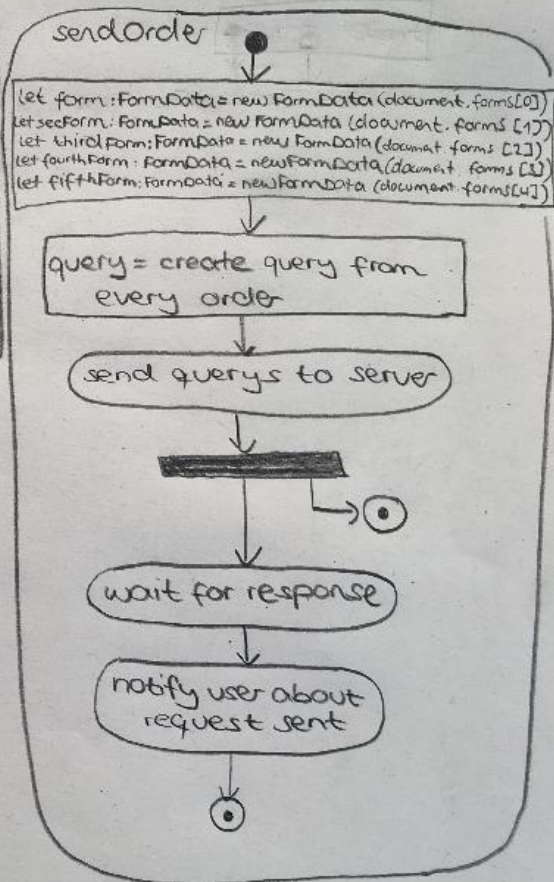 sendOrder
let form:FormData=new FormData(document.forms[0])
let secForm:FormData=new FormData(document.forms[1])
let thirdForm:FormData=new FormData(document.forms[2])
let fourthForm:FormData=newFormData(document.forms[3])
let fifthForm:FormData=newFormData(document.forms[4])
query= create query from
every order
send querys to server
wait for response
notify user about
request sent